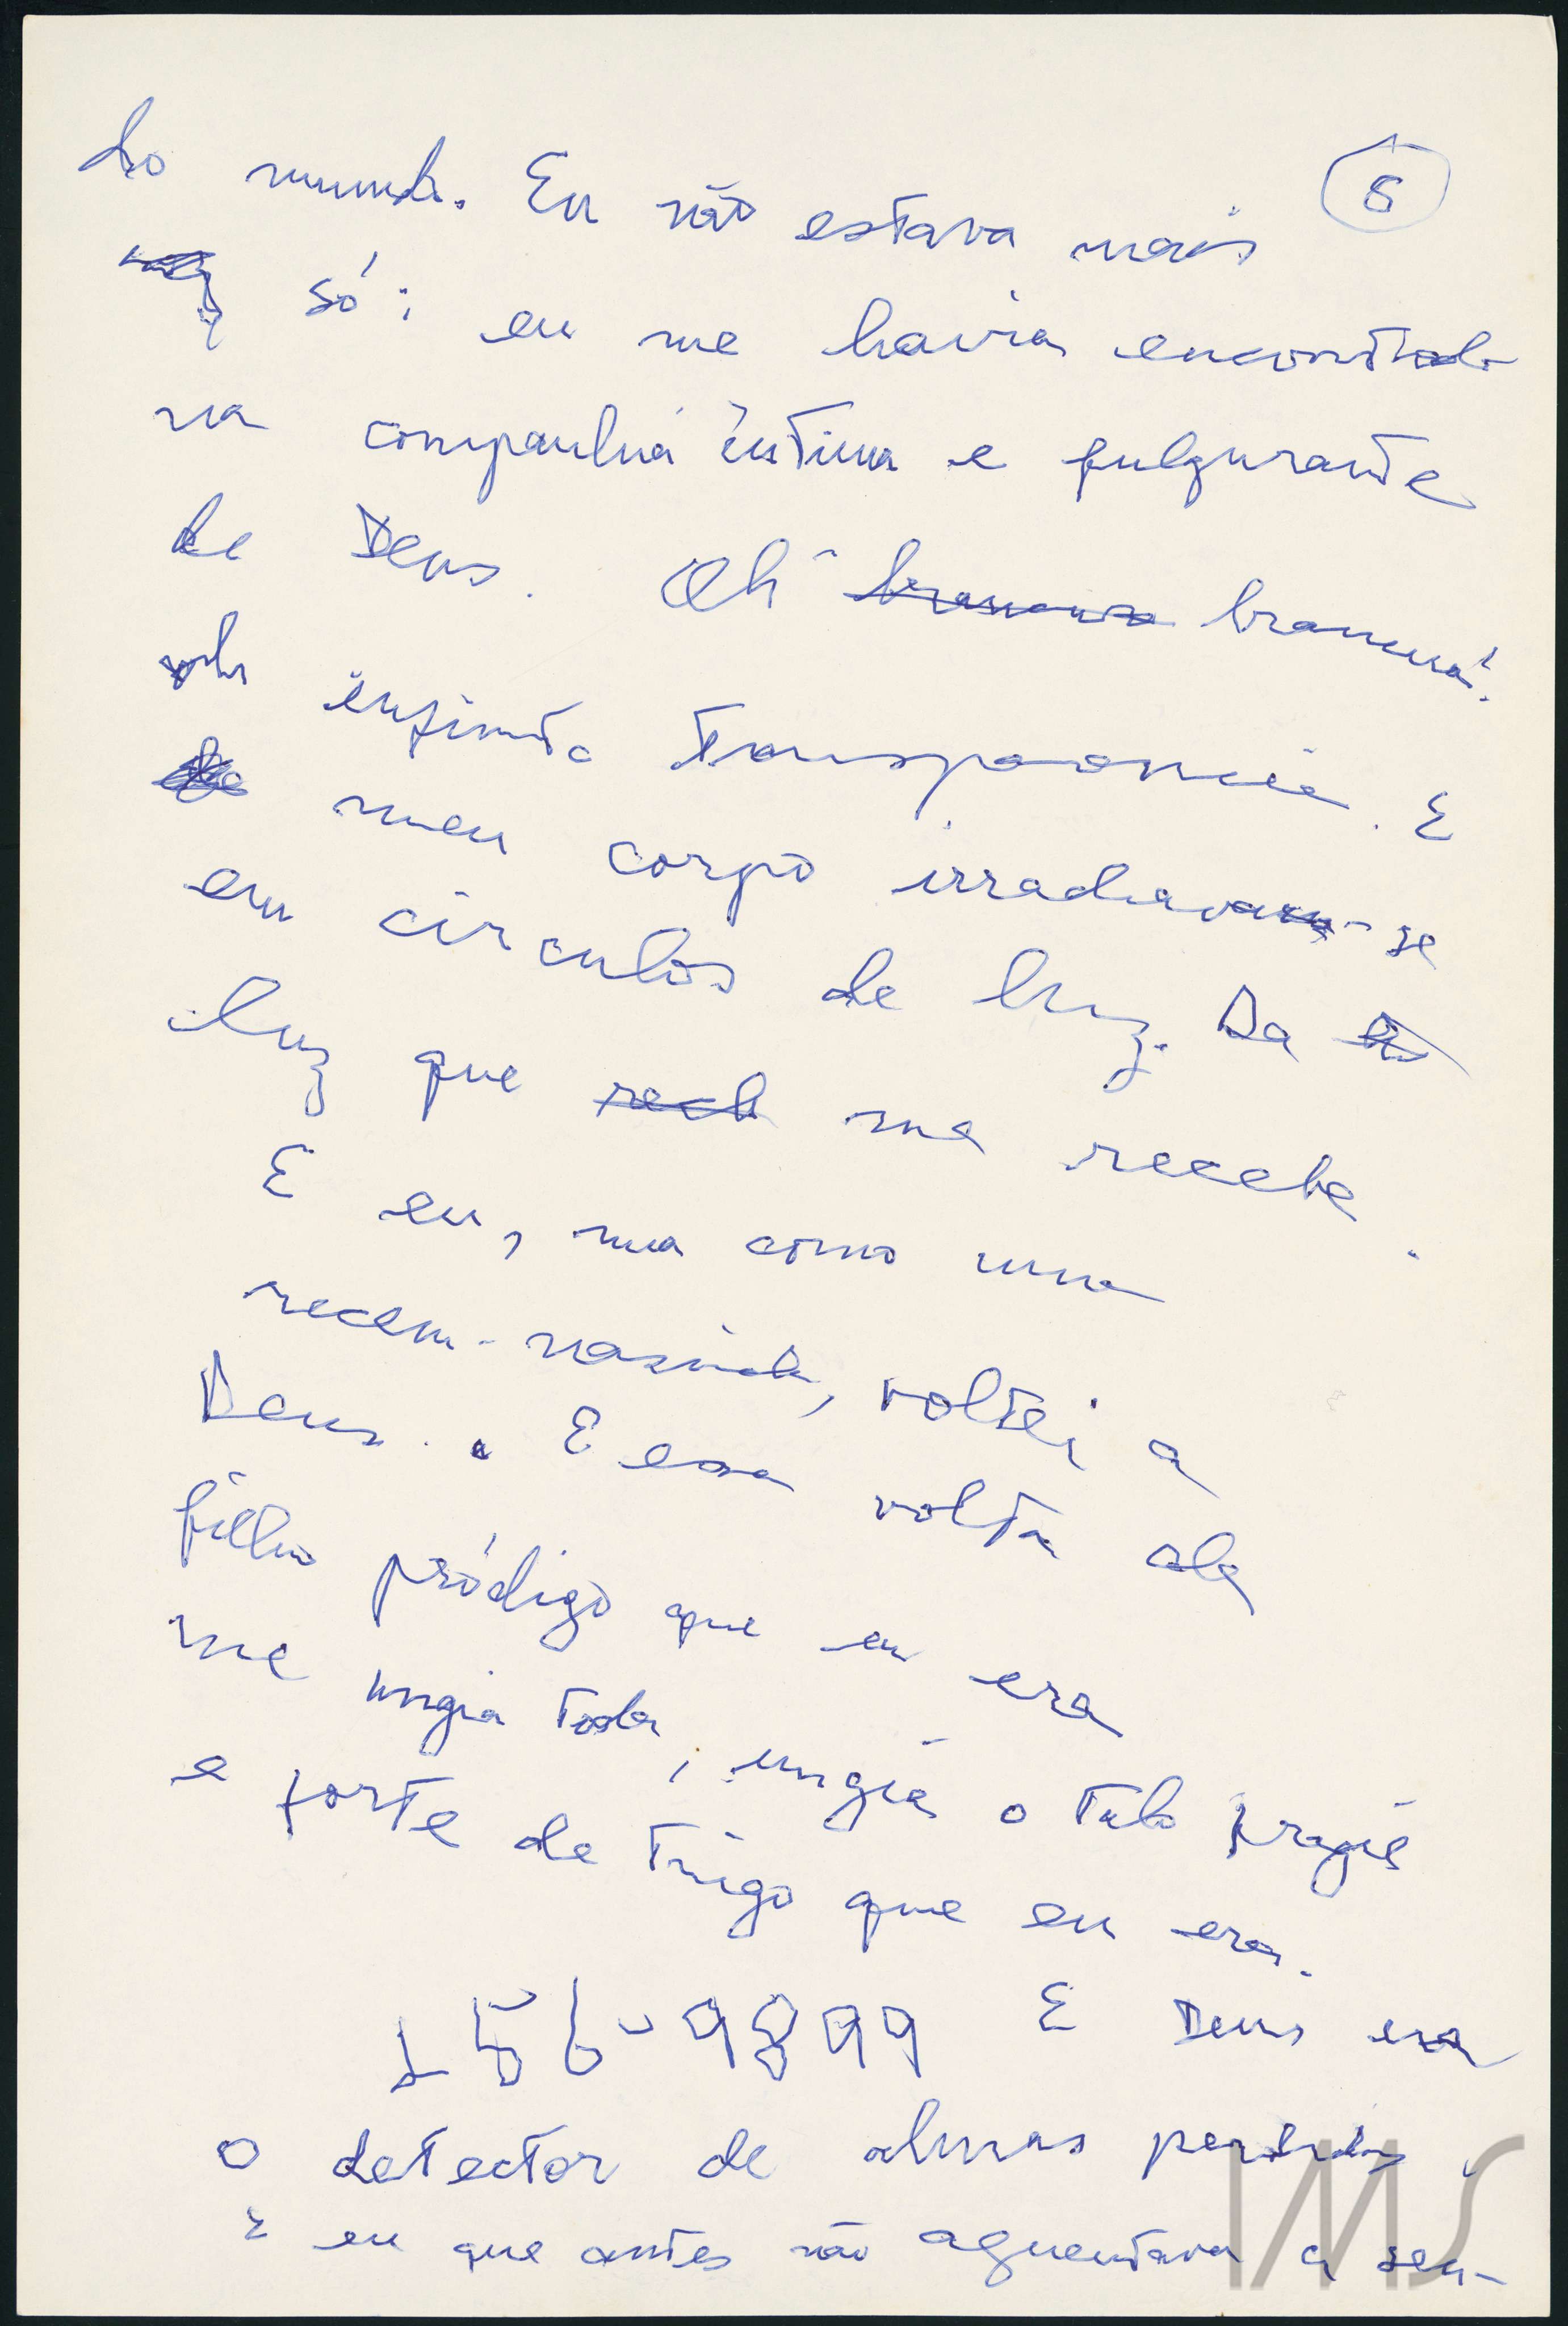 do mundo. Eu não estava mais 5
só: eu me havia encontrado
na companhia íntima e fulgurante
de Deus. Oh brancura!
oh infinita transparência. E
meu corpo irradiava-se
em circulos de luz. Da
luz que me recebe.
E eu, nua como uma
recem-nascida, voltei a
Deus. E essa volta de
filho pródigo que eu era
me ungia toda, ungia o talo fragil
e forte de trigo que eu era.
266-9899 E Deus era
o detector de almas perdidas.
E eu que antes não aguentava a sen-
IMS